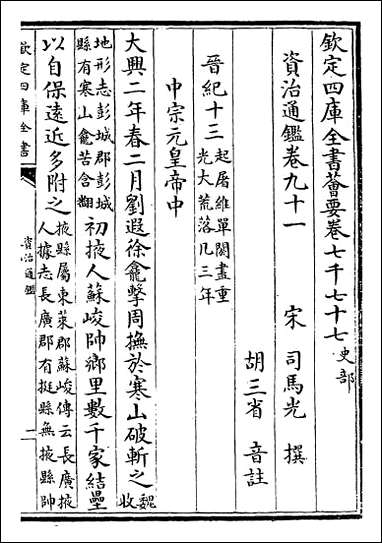 欽定四庫全書薈要卷七千七十七 史部
資治通鑑卷九十一
宋 司馬光 撰
胡三省 音註
晉紀十三 起屠維單閼盡重
光大荒落凡三年
中宗元皇帝中
大興二年春二月劉遐徐龕擊周撫於寒山破斬之 魏收
地形志彭城郡彭城
縣有寒山龕苦含翻
初掖人蘇峻帥鄉里數千家結壘
以自保遠近多附之 掖縣屬東萊郡蘇峻傳云長廣掖
人據志長廣郡有挺縣無掖縣帥
欽定四庫全書
資治通鑑
一